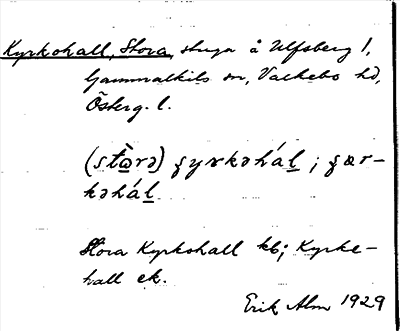 Kyrkohall, Stora, stuga å Ulfsberg 1,
Gammalkils sn, Valkebo hd,
Österg. l.
(stọ̀rə) ʂyrkəhál; ʂær-
kəhál
Stora Kyrkohall kb; Kyrke-
hall ek.
Erik Alm 1929